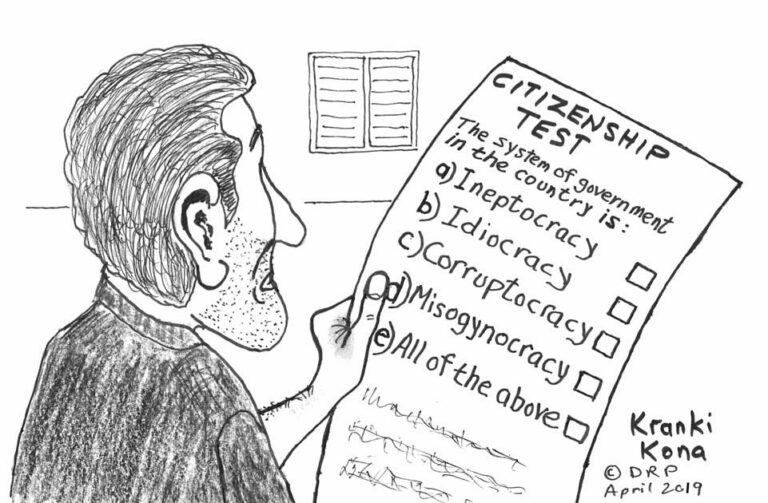 CITIZENSHIP
TEST
The system of government
in the country is:
a) Ineptocracy
b) Idiocracy
c) Corruptocracy
d) Misogynocracy
e) All of the above
Kranki
Kona
© DRP
April 2019